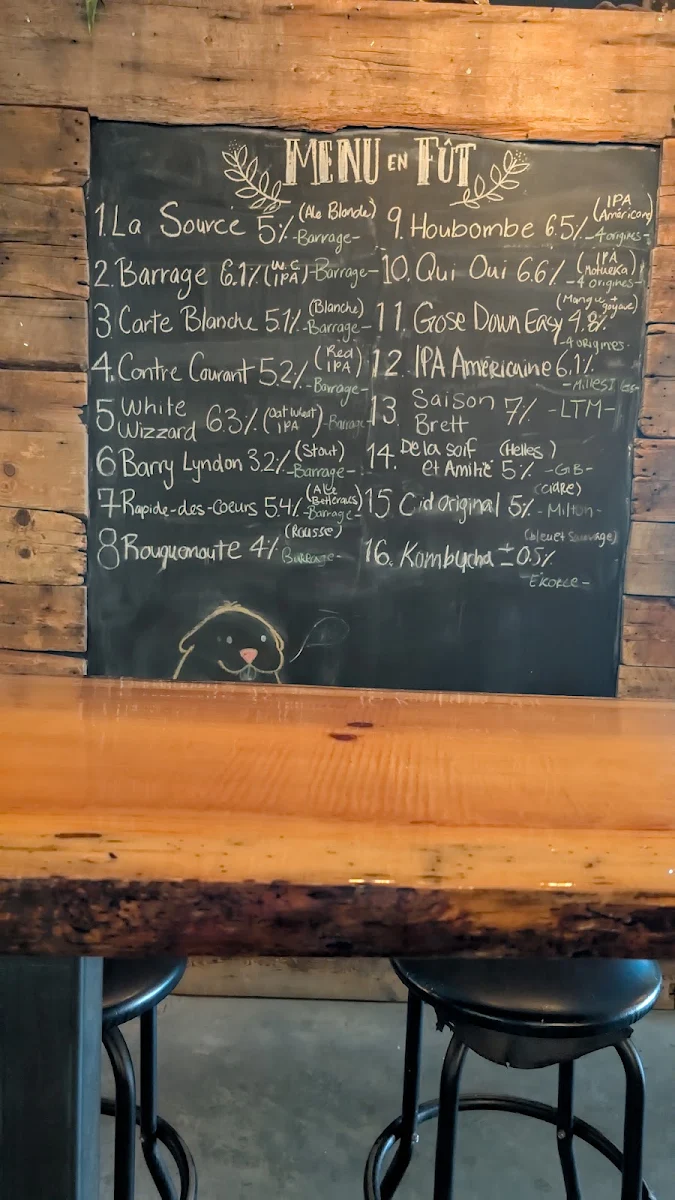 MENU EN FÛT
1. La Source 5% (Ale Blonde) -Barrage-
2. Barrage 6.1% (W.C IPA) -Barrage-
3 Carte Blanche 5.1% (Blanche) -Barrage-
4. Contre Courant 5.2% (Red IPA) -Barrage-
5 White Wizzard 6.3% (Oat Wheat IPA) -Barrage-
6 Barry Lyndon 3.2% (Stout) -Barrage-
7 Rapide-des-Coeurs 5.4% (Ale Betteraves) -Barrage-
8 Rouquemoute 4% (Rousse)
9. Houbombe 6.5% (IPA Américaine) -4 origines-
10. Qui Oui 6.6% (IPA Motueka) -4 origines-
11. Gose Down Easy 4.8% (Mangue + goyave) -4 origines-
12. IPA Américaine 6.1%
13 Saison Brett 7% -LTM-
14. De la soif et Amitié 5% (Helles)
15 Cid Original 5% (Cidre) -Milton-
16. Kombucha ±0.5% (bleuet Sauvage) -Écorce-